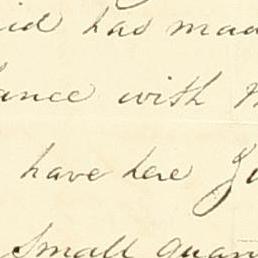 id has mad
ance with
have here
small quan